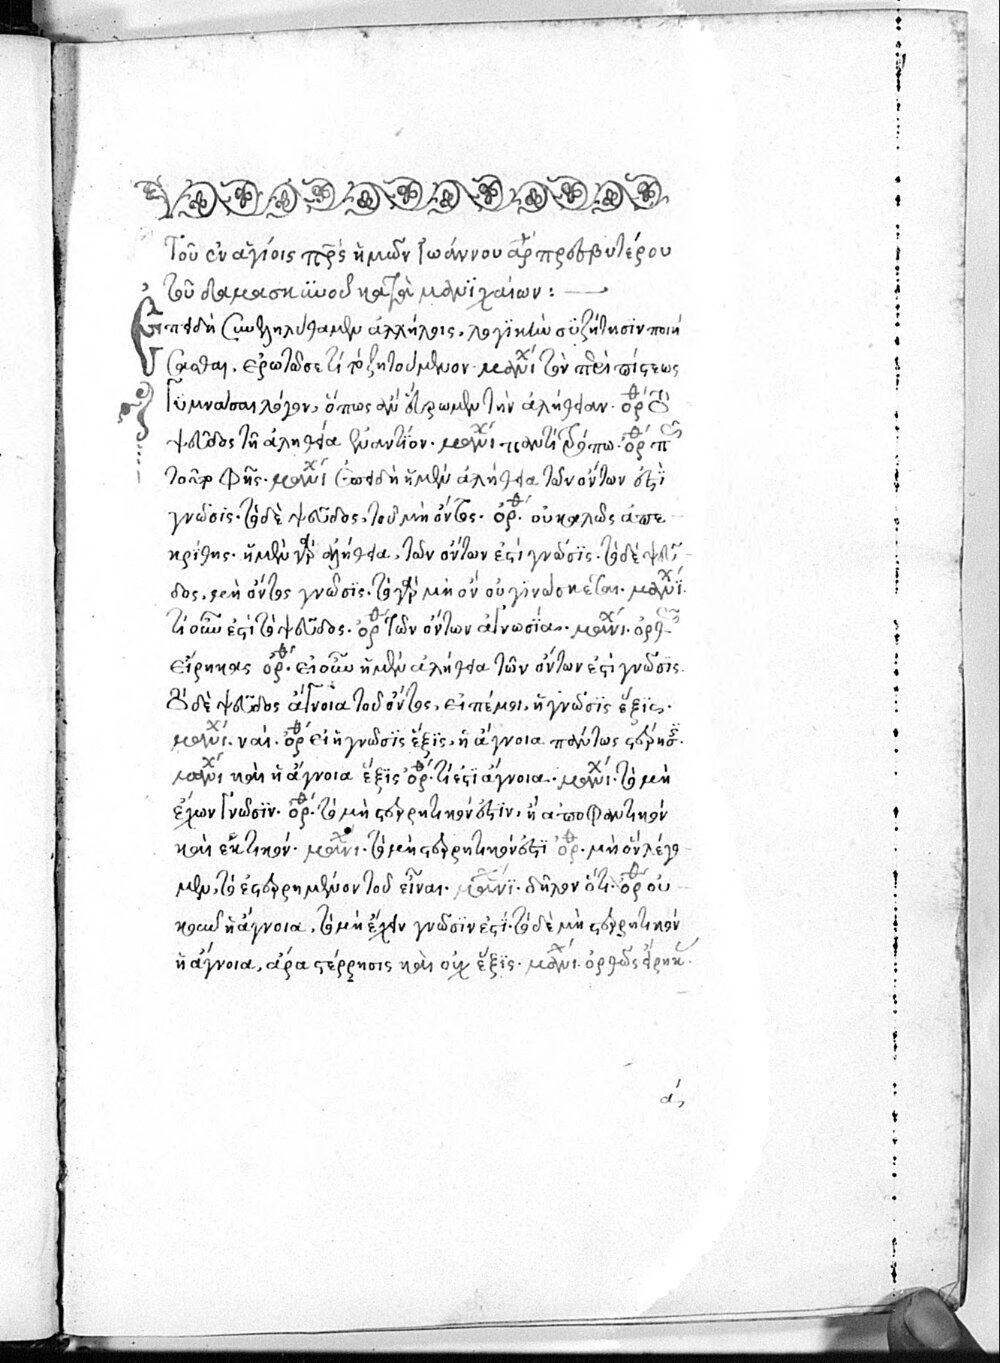 Τοῦ ἐν ἁγίοις πρς ἡμῶν Ἰωάννου ἀρ πρεσβυτέρου
τοῦ δαμασκηνοῦ κατὰ μανιχαίων :
Ἐπειδὴ συνεληλύθαμεν ἀλλήλοις, λογικὴν συζήτησιν ποιή
σασθαι, ἐρωτῶ σε τί τὸ ζητούμενον· μανιχ τὸν περὶ πίστεως
γυμνάσαι λόγον, ὅπως ἂν εὕρωμεν τὴν ἀλήθειαν· ὀρθ τὸ
ψεῦδος τῇ ἀληθείᾳ ἐναντίον· μανιχ παντὶ τρόπῳ· ὀρθ
μανιχ ἐπειδὴ ἡ μὲν ἀλήθεια τῶν ὄντων ἐστὶ
γνῶσις· τὸ δὲ ψεῦδος, τοῦ μὴ ὄντος· ὀρθ· οὐ καλῶς ἀπε
κρίθης· ἡ μὲν γὰρ ἀλήθεια, τῶν ὄντων ἐστὶ γνῶσις· τὸ δὲ ψεῦ
δος, μὴ ὄντος γνῶσις· τὸ γὰρ μὴ ὂν οὐ γινώσκεται· μανιχ
τί οὖν ἐστὶ τὸ ψεῦδος· ὀρθ τῶν ὄντων ἀγνωσία· μανιχ· ὀρθ
εἴρηκας ὀρθ· εἰ οὖν ἡ μὲν ἀλήθεια τῶν ὄντων ἐστὶ γνῶσις
τὸ δὲ ψεῦδος ἄγνοια τοῦ ὄντος, εἰπέ μοι, ἡ γνῶσις ἕξις·
μανιχ· ναί· ὀρθ εἰ ἡ γνῶσις ἕξις, ἡ ἄγνοια πάντως στέρησ·
μανιχ καὶ ἡ ἄγνοια ἕξις ὀρθ· τί ἐστι ἄγνοια· μανιχ· τὸ μὴ
ἔχειν γνῶσιν· ὀρθ· τὸ μὴ στερητικόν ἐστιν, ἢ ἀποφαντικὸν
καὶ ἑκτικόν· μανιχ· τὸ μὴ στερητικόν ἐστι ὀρθ· μὴ ὂν λέγο
μεν, τὸ ἐστερημένον τοῦ εἶναι· μανιχ· δῆλον ὅτι· ὀρθ οὐ
κοῦν ἡ ἄγνοια, τὸ μὴ ἔχειν γνῶσιν ἐστί· τὸ δὲ μὴ στερητικόν
ἡ ἄγνοια, ἄρα στέρησις καὶ οὐχ ἕξις· μανιχ· ὀρθῶς εἴρηκ·
α